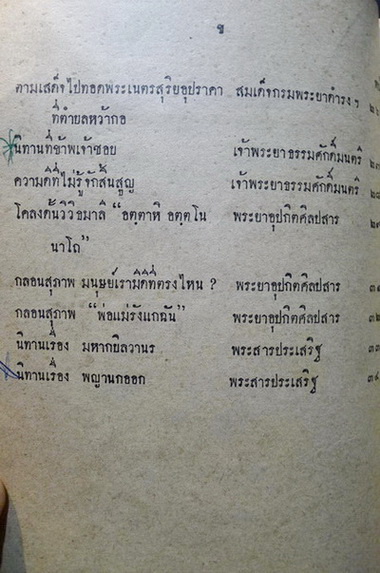 ข
ตามเสด็จไปทอดพระเนตรสุริยอุปราคา สมเด็จกรมพระยาดำรง ฯ ๒๖
ที่ตำบลหว้ากอ
นิทานที่ข้าพเจ้าชอบ เจ้าพระยาธรรมศักดิ์มนตรี ๒๗
ความดีที่ไม่รู้จักสิ้นสูญ เจ้าพระยาธรรมศักดิ์มนตรี ๒๘
โคลงดั้นวิวิธมาลี “อตฺตาหิ อตฺตโน พระยาอุปกิตศิลปสาร ๒๙
นาโถ”
กลอนสุภาพ มนุษย์เรามีดีที่ตรงไหน ? พระยาอุปกิตศิลปสาร ๓๑
กลอนสุภาพ “พ่อแม่รังแกฉัน” พระยาอุปกิตศิลปสาร ๓๒
นิทานเรื่อง มหากบิลวานร พระสารประเสริฐ ๓๓
นิทานเรื่อง พญานกออก พระสารประเสริฐ